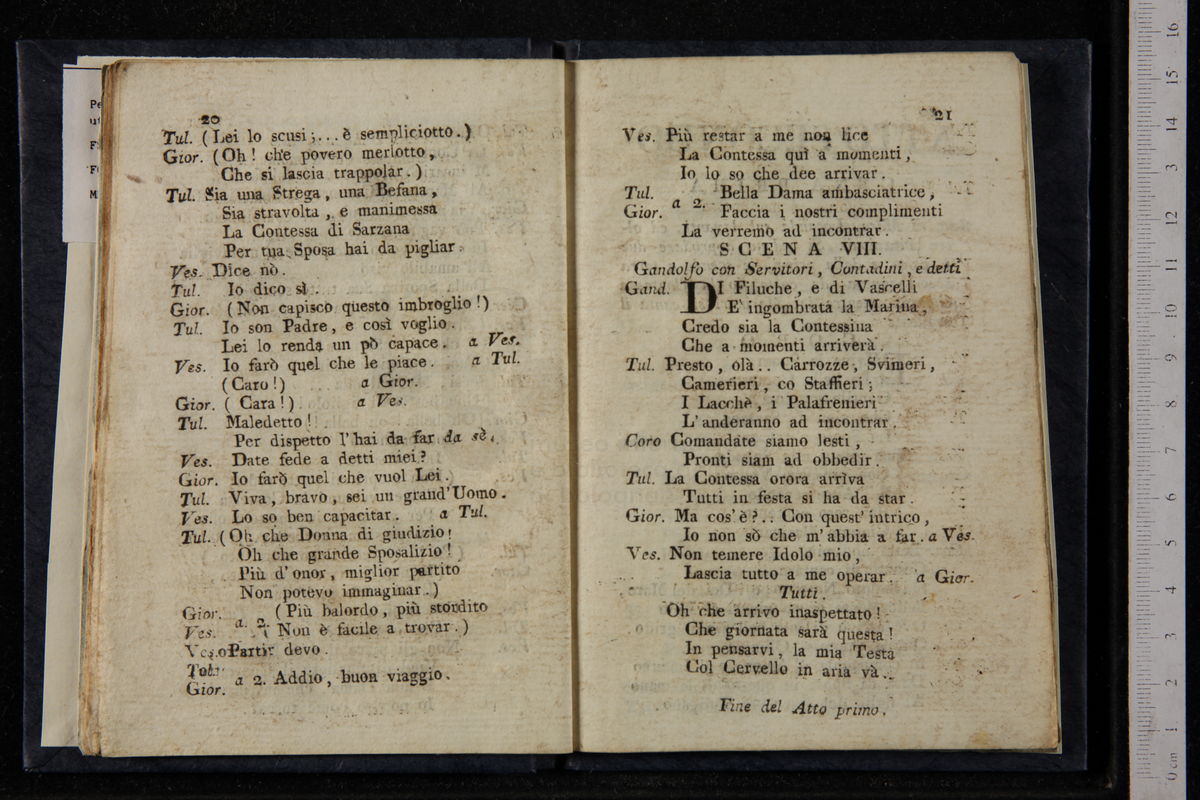 20
Tul. (Lei lo scusi;... è sempliciotto.)
Gior. (Oh! che povero merlotto,
Che si lascia trappolar.)
Tul. Sia una Strega, una Befana,
Sia stravolta, e manimessa
La Contessa di Sarzana
Per tua Sposa hai da pigliar.
Ves. Dice nò.
Tul. Io dico sì.
Gior. (Non capisco questo imbroglio!)
Tul. Io son Padre, e così voglio.
Lei lo renda un pò capace. a Ves.
Ves. Io farò quel che le piace. a Tul.
(Caro!) a Gior.
Gior. (Cara!) a Ves.
Tul. Maledetto!
Per dispetto l'hai da far da sè.
Ves. Date fede a detti miei?
Gior. Io farò quel che vuol Lei.
Tul. Viva, bravo, sei un grand'Uomo.
Ves. Lo so ben capacitar. a Tul.
Tul. (Oh che Donna di giudizio!
Oh che grande Sposalizio!
Più d'onor, miglior partito
Non potevo immaginar.)
Gior. a 2. (Più balordo, più stordito
Ves. (Non è facile a trovar.)
Ves. Partir devo.
Tul.
Gior. a 2. Addio, buon viaggio.
21
Ves. Più restar a me non lice
La Contessa quì a momenti,
Io lo so che dee arrivar.
Tul. a 2. Bella Dama ambasciatrice,
Gior. Faccia i nostri complimenti
La verremo ad incontrar.
SCENA VIII.
Gandolfo con Servitori, Contadini, e detti
Gand. DI Filuche, e di Vascelli
E' ingombrata la Marina,
Credo sia la Contessina
Che a momenti arriverà.
Tul. Presto, olà.. Carrozze, Svimeri,
Camerieri, co Staffieri;
I Lacchè, i Palafrenieri
L'anderanno ad incontrar.
Coro Comandate siamo lesti,
Pronti siam ad obbedir.
Tul. La Contessa orora arriva
Tutti in festa si ha da star.
Gior. Ma cos'è?.. Con quest'intrico,
Io non sò che m'abbia a far. a Ves.
Ves. Non temere Idolo mio,
Lascia tutto a me operar. a Gior.
Tutti.
Oh che arrivo inaspettato!
Che giornata sarà questa!
In pensarvi, la mia Testa
Col Cervello in aria và.
Fine del Atto primo.
0 cm 1 2 3 4 5 6 7 8 9 10 11 12 13 14 15 16